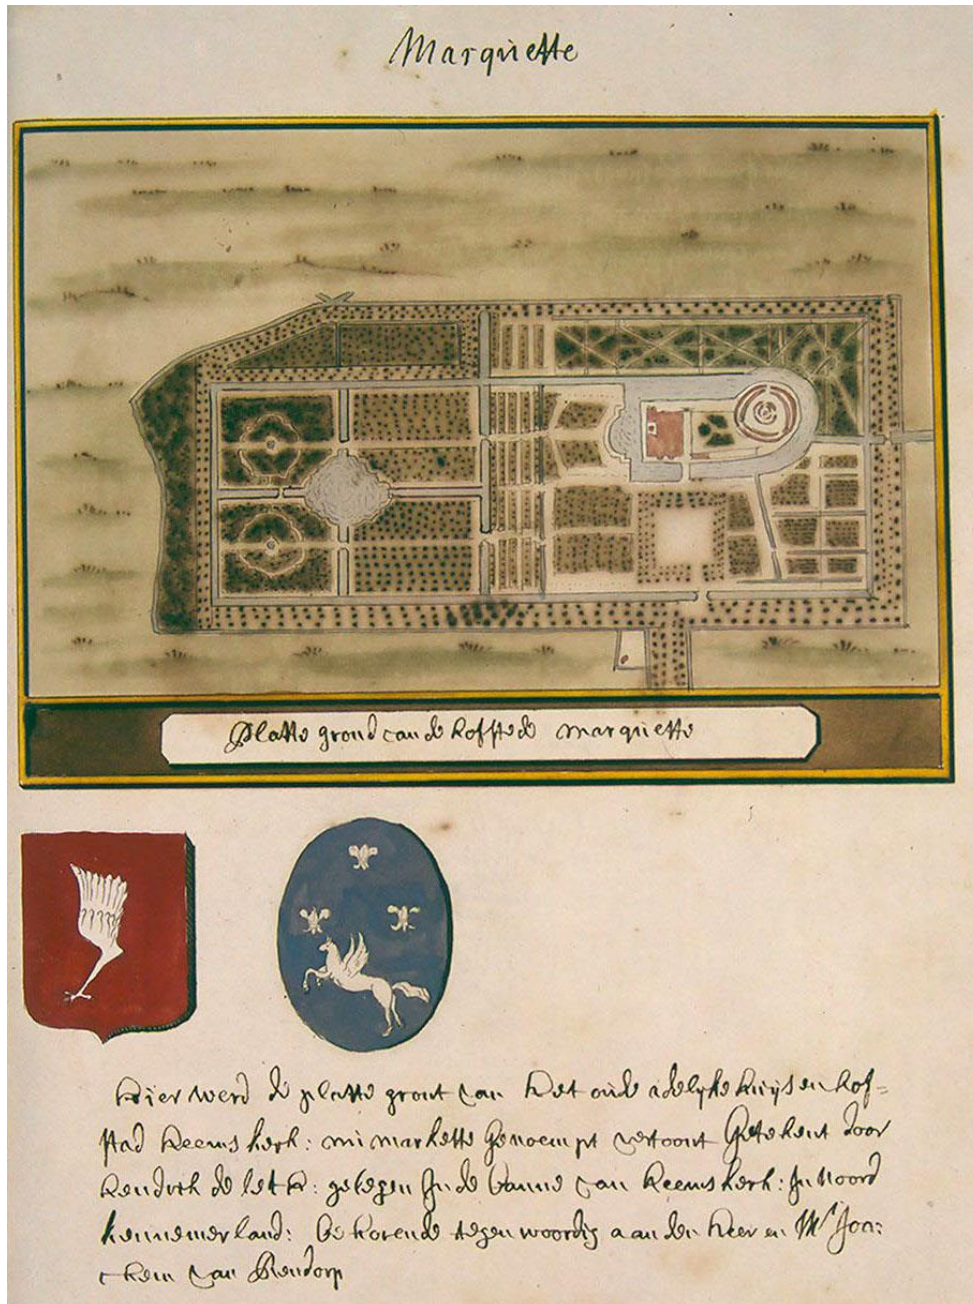 Marquette
platte grond van de hofstede marquette
hier werd de platte gront van het oude adelyke huijs en hof=
stad heemskerk: nu markette genoempt vertoont getekent door
hendrik de leth: gelegen in de banne van heemskerk: in Noord
kennemerland: behorende tegenwoordig aan den heer en Mr Joa:
chem van Rendorp